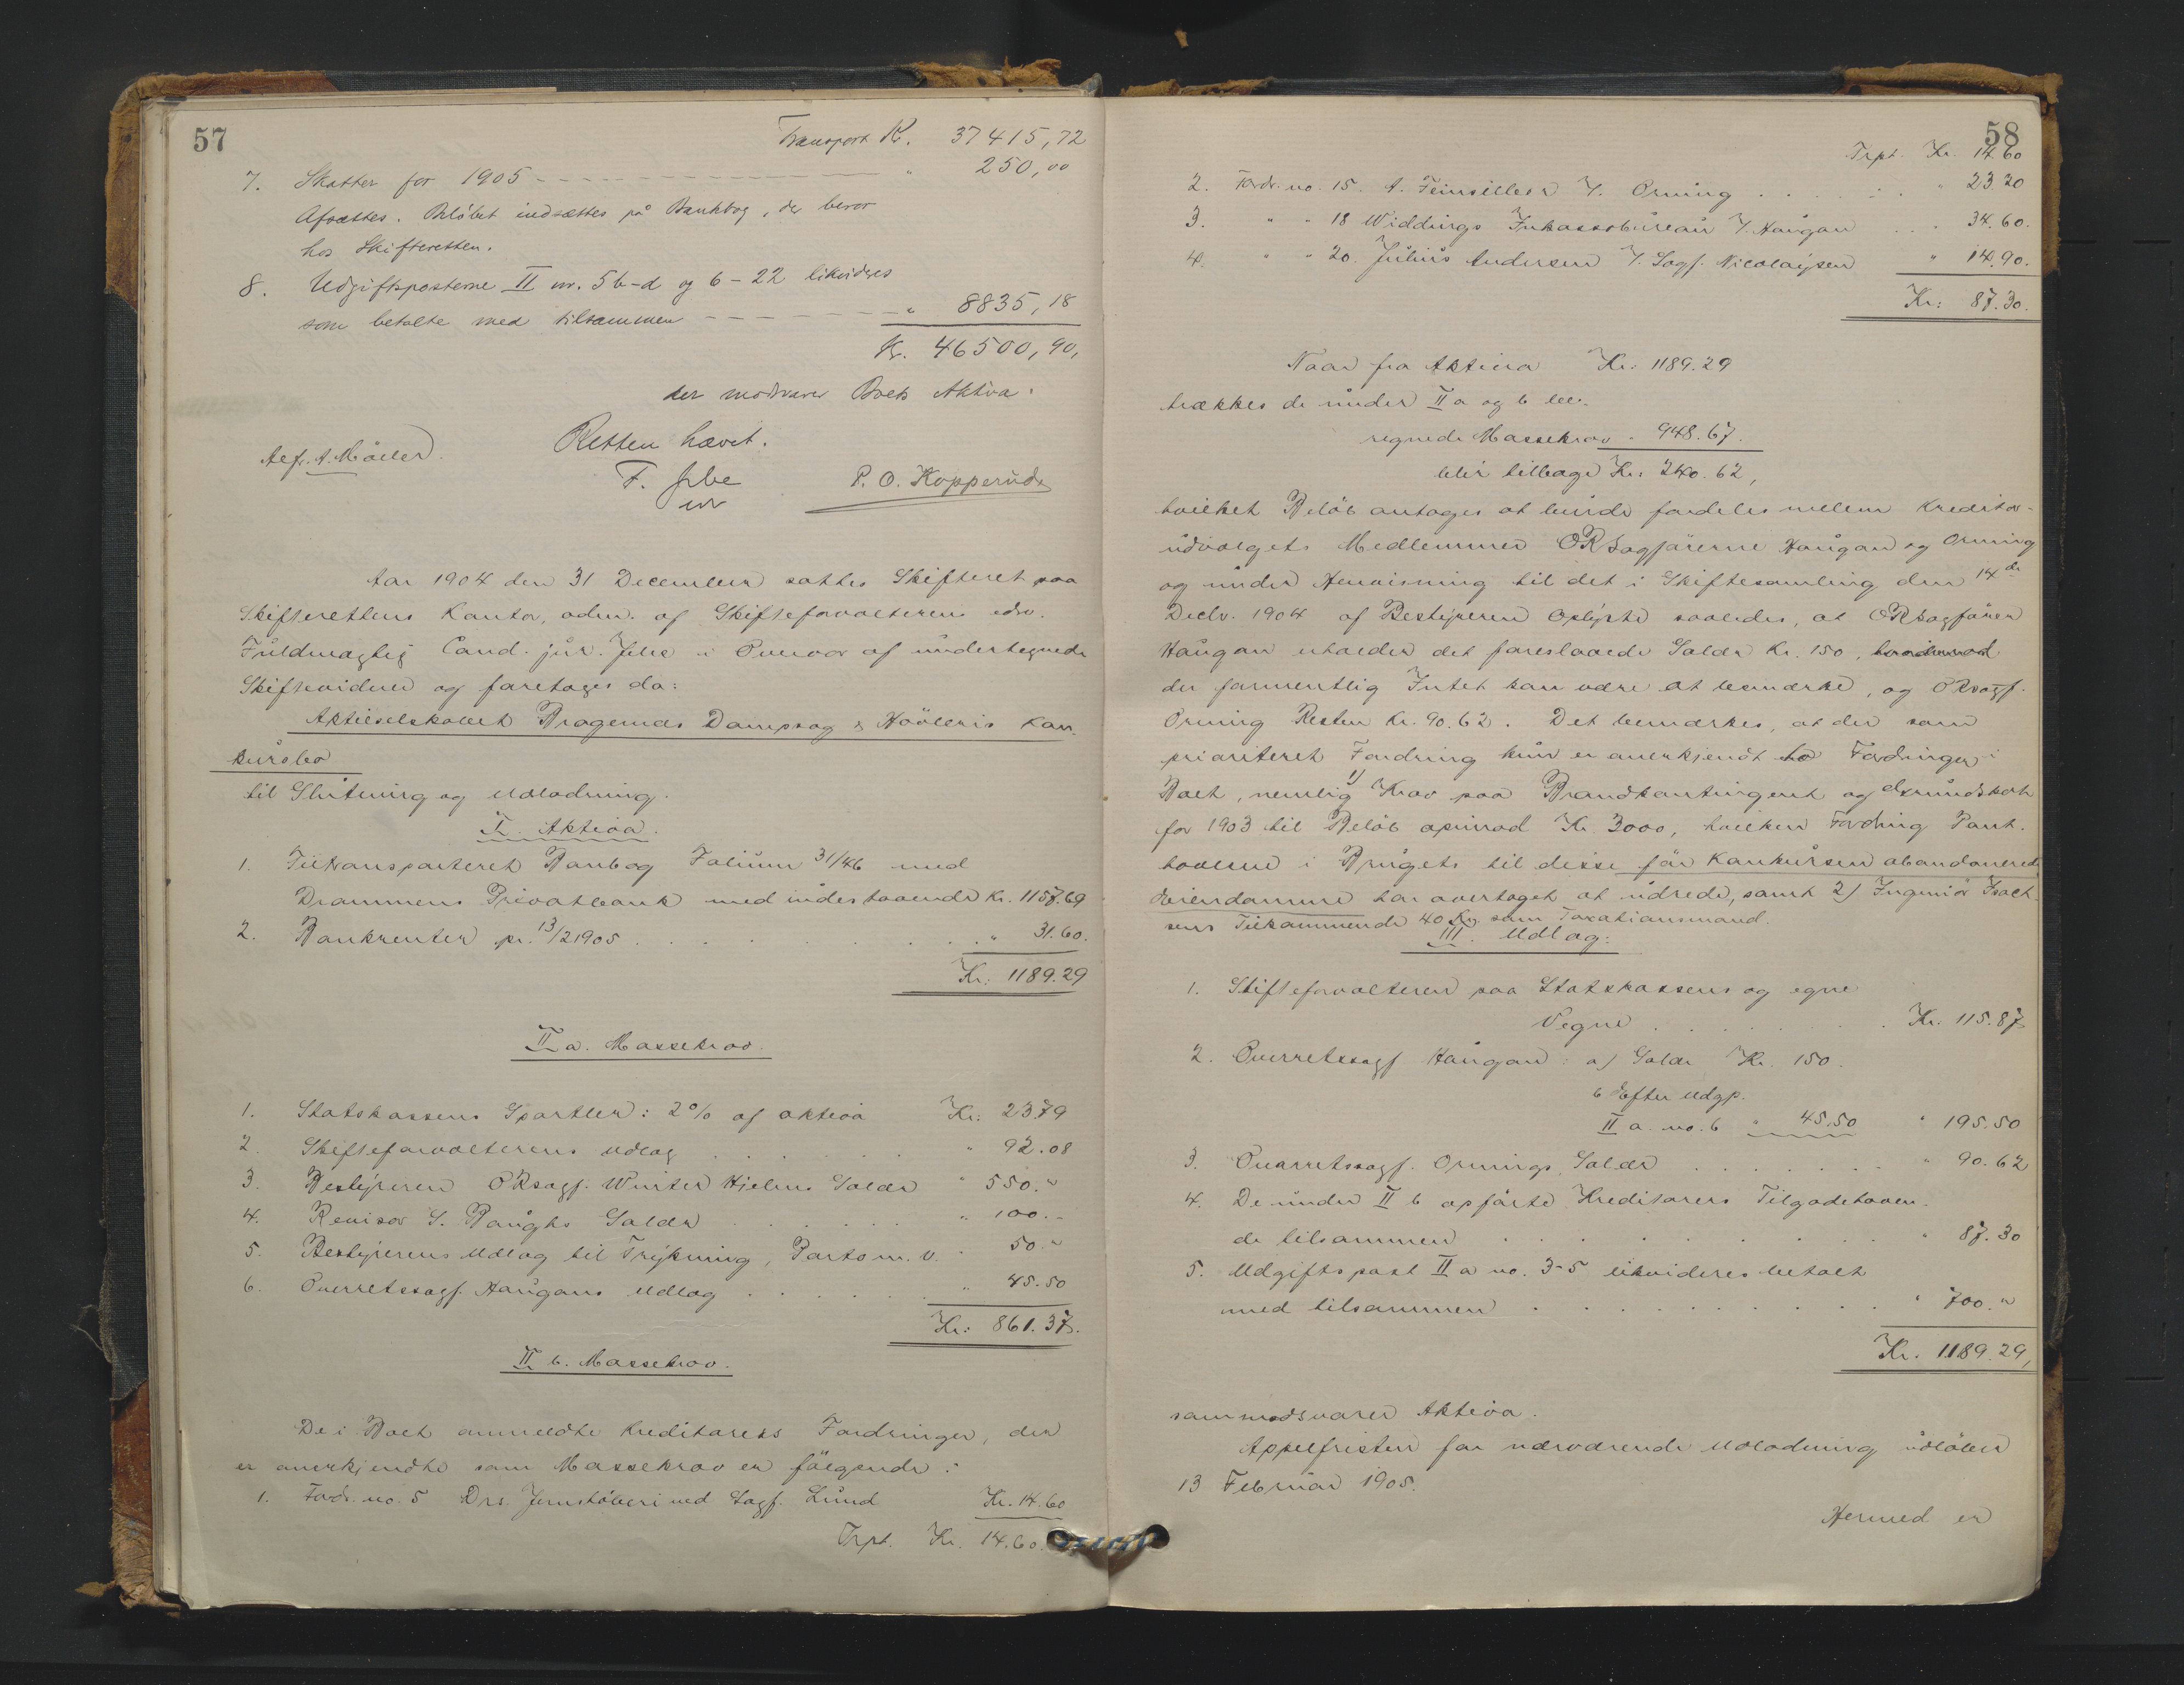 57
Transport Kr. 37415,72
7. Skatter for 1905 - - - - - - " 250,00
Afsættes. Beløbet indsættes på Bankbog, der beror
hos Skifteretten.
8. Udgiftsposterne II nr. 5 b-d og 6-22 likvideres
som betalte med tilsammen - - - - - " 8835,18
Kr. 46500,90,
der modsvarer Boets Aktiva.
Retten hævet.
Alf. A. Møller.
F. Jebe
P. O. Kopperud
Aar 1904 den 31 December sattes Skifteret paa
Skifterettens Kontor, adm. af Skifteforvalterens edsv.
Fuldmægtig Cand. jur. Jebe i Overvær af undertegnede
Skiftevidner og foretoges da:
Aktieselskabet Bragernes Dampsag & Høvleris Kon-
kursbo
til Slutning og Udlodning.
I. Aktiva.
1. Tiltransporteret Bankbog Folium 31/46 med
Drammens Privatbank med indestaaende Kr. 1157.69
2. Bankrenter pr. 13/2 1905 . . . . . . " 31.60.
Kr: 1189.29
II a. Massekrav.
1. Statskassens Sportler: 2% af aktiva Kr: 23.79
2. Skifteforvalterens udlæg . . . . . " 92.08
3. Bestyreren ORsagf. Winter Hjelms Salær " 550."
4. Revisor S. Salær . . . . . " 100.-
5. Bestyrerens Udlæg til Trykning, Porto m. v. " 50."
6. Overretssagf. Haugans Udlæg . . . . . " 45.50
Kr: 861.37.
II b. Massekrav.
De i Boet anmeldte Kreditorers Fordringer, der
er anerkjendte som Massekrav er følgende:
1. Fordr. no. 5 Drs. Jernstøberi ved Sagf. Lund Kr. 14.60
Trpt. Kr. 14.60.
58
Trpt. Kr. 14.60
2. Fordr. no. 15. A. V. Orning . . . . . " 23.20
3. " " 18 Widdings Inkassobureau V. Haugan . . " 34.60.
4. " " 20. Julius Andersen V. Sagf. Nicolaysen " 14.90.
Kr: 87.30.
Naar fra Aktiva Kr: 1189.29
trækkes de under II a og b be-
regnede Massekrav " 948.67.
blir tilbage Kr: 240.62,
hvilket Beløb antages at burde fordeles mellem Kreditor-
udvalgets Medlemmer ORsagførerne Haugan og Orning
og under Henvisning til det i Skiftesamling den 14de
Decbr. 1904 af Bestyreren Oplyste saaledes, at ORsagfører
Haugan erholder det foreslaaede Salær Kr. 150, hvorimod
der formentlig Intet kan være at bemærke, og ORsagf.
Orning Resten Kr. 90.62. Det bemærkes, at der som
prioriteret Fordring kun er anerkjendt to Fordringer i
Boet, nemlig 1) Krav paa Brandkontingent og Grundskat
for 1903 til Beløb opimod Kr. 3000, hvilken Fordring Pant-
haverne i Brugets til disse før Konkursen abandonerede
Eiendomme har overtaget at udrede, samt 2) Ingeniør Isach-
sens Tilkommende 40 Kr. som Taxationsmand.
III. Udlæg:
1. Skifteforvalteren paa Statskassens og egne
Vegne . . . . . . . Kr. 115.87
2. Overretssagf Haugan: a) Salær Kr. 150.
b Efter Udgp.
II a. no. 6 " 45.50 " 195.50
3. Overretssagf. Ornings Salær . . . . . . " 90.62
4. De under II b opførte Kreditorers Tilgodehaven-
de tilsammen . . . . . . . . " 87.30
5. Udgiftspost II a no. 3-5 likvideres betalt
med tilsammen . . . . . . . . " 700."
Kr. 1189.29,
som modsvarer Aktiva.
Appelfristen for nærværende Udlodning udløber
13 Februar 1905.
Hermed er